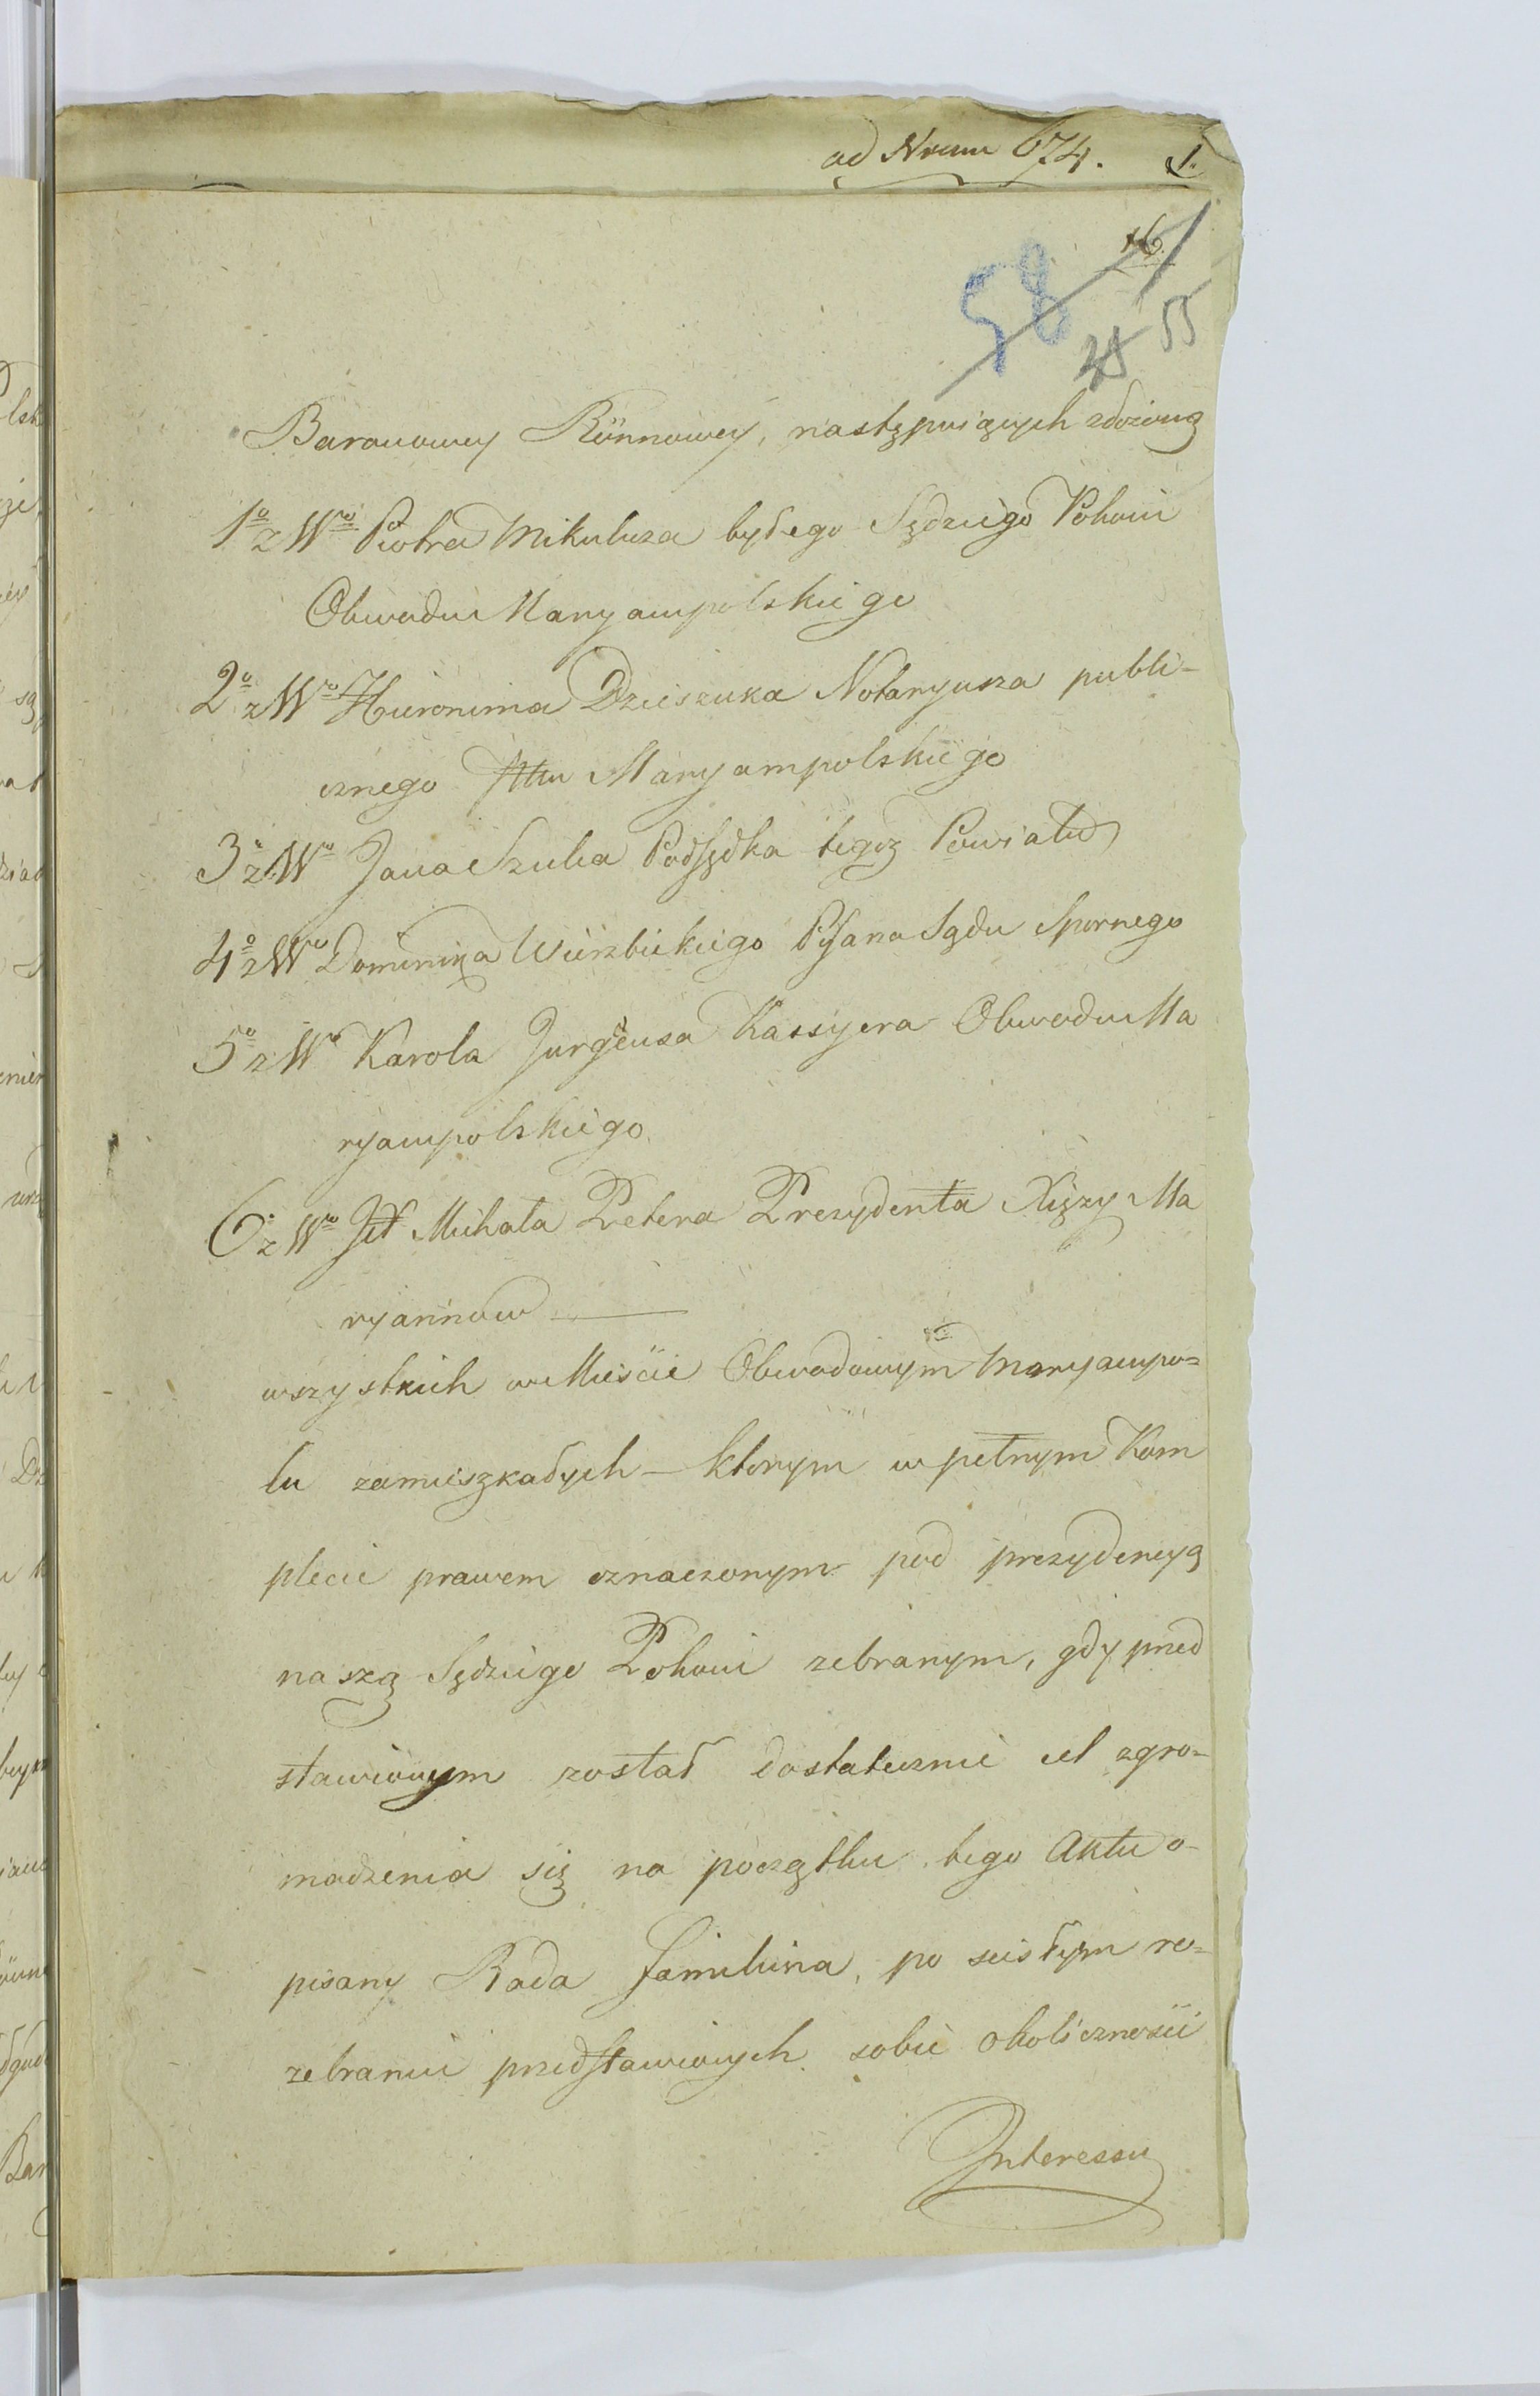 ad Nrum 674. 1.
16.
58
28 55
Baronowey Rönnowey, następuiących złożoną
1o z Wgo Piotra Mikulicza byłego Sędziego Pokoiu
Obwodu Maryampolskiego
2o z Wgo Hieronima Dzieszuka Notaryusza publi-
cznego Pttu Maryampolskiego
3o z Wgo Jana Szulca Podsędka tegoż Powiatu
4o z Wgo Dominika Wierzbickiego Pisarza Sądu Spornego
5o z Wgo Karola Jurgensa Kassyera Obwodu Ma
ryampolskiego
6o z Wgo JX Michała Petera Prezydenta Xięży Ma
ryannów
wszystkich w Mieście Obwodowym Maryampo-
lu zamieszkałych – którym w pełnym Kom
plecie prawem oznaczonym pod prezydencyą
naszą Sędziego Pokoiu zebranym, gdy przed
stawionym został dostatecznie cel zgro-
madzenia się na początku tego Aktu o-
pisany Rada familiina, po scisłym ro-
zebraniu przedstawionych sobie okoliczności
Interessu